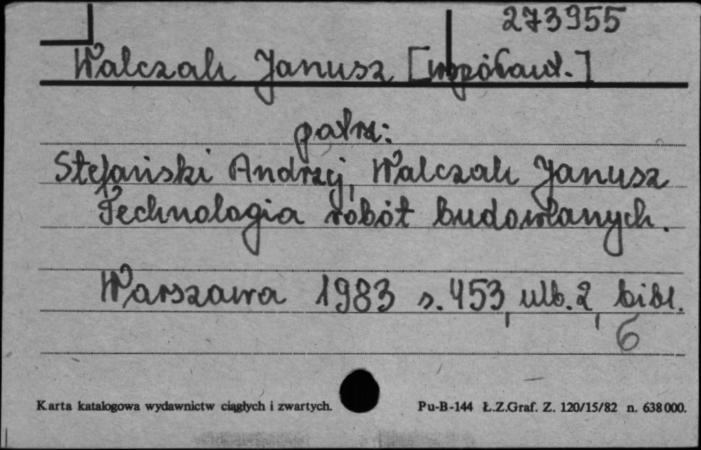 273955
Walczak Janusz [współaut.]
patrz:
Stefański Andrzej, Walczak Janusz
Technologia robót budowlanych.
Warszawa 1983 s. 453, ulb. 2, bibl.
6
Karta katalogowa wydawnictw ciągłych i zwartych. Pu-B-144 Ł.Z.Graf. Z. 120/15/82 n. 638000.